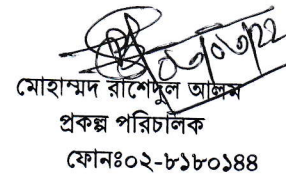 ০৬/০৬/২২
মোহাম্মদ রাশেদুল আলম
প্রকল্প পরিচালক
ফোনঃ০২-৮১৮০১৪৪